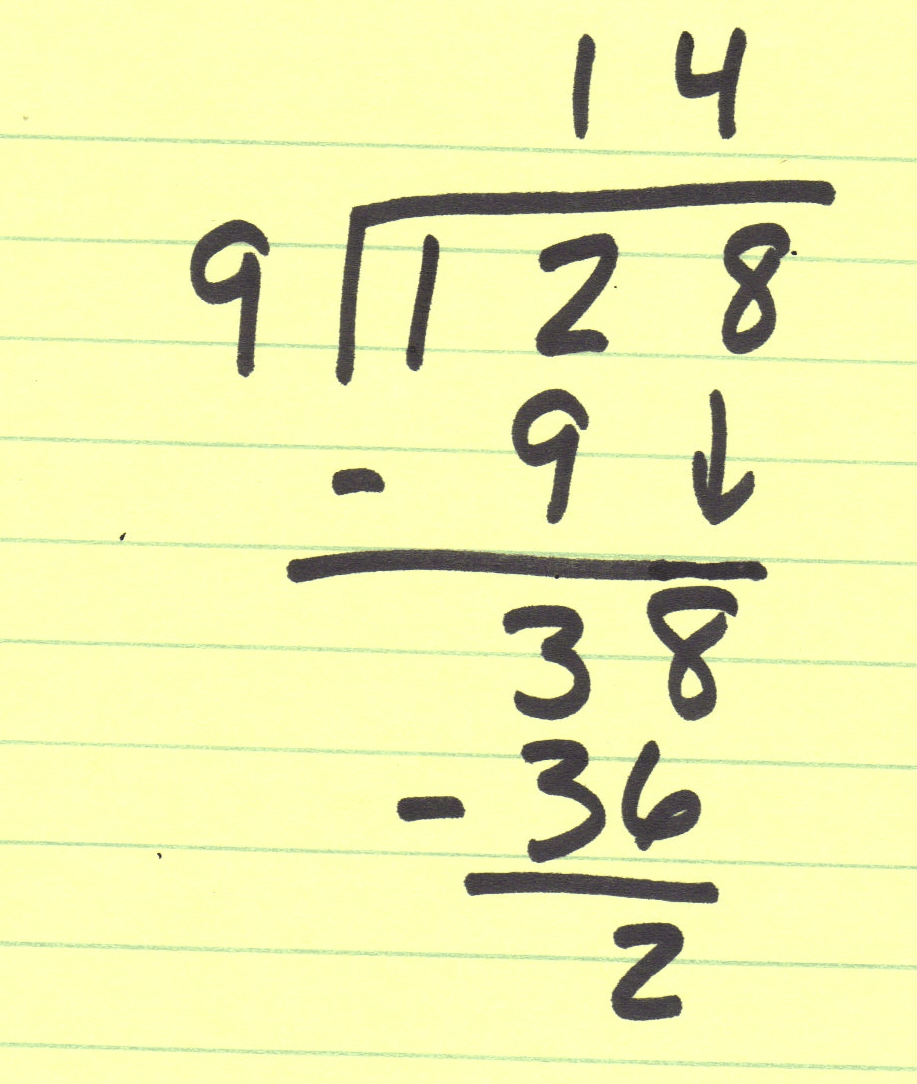 14
9 128
- 9 ↓
38
- 36
2